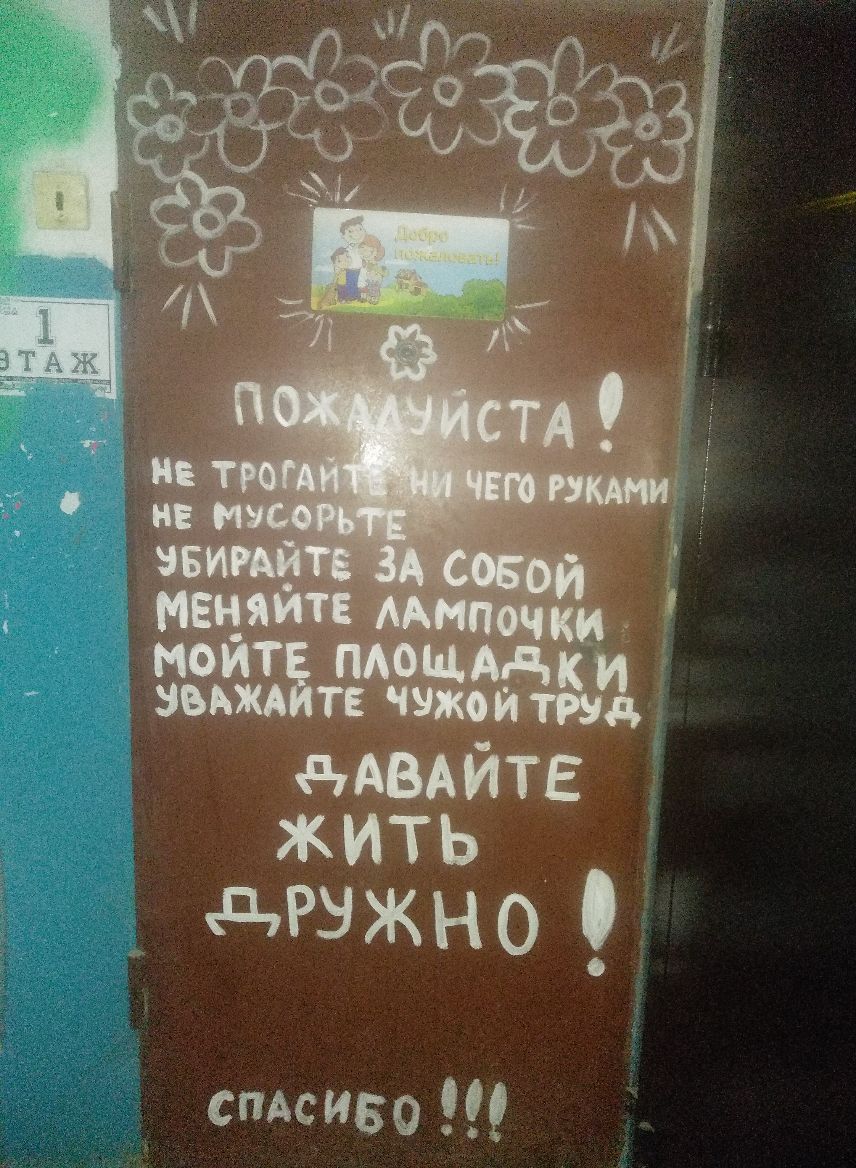 Добро
пожаловать!
1
ЭТАЖ
ПОЖАЛУЙСТА!
НЕ ТРОГАЙТЕ НИ ЧЕГО РУКАМИ
НЕ МУСОРЬТЕ
УБИРАЙТЕ ЗА СОБОЙ
МЕНЯЙТЕ ЛАМПОЧКИ
МОЙТЕ ПЛОЩАДКИ
УВАЖАЙТЕ ЧУЖОЙ ТРУД
ДАВАЙТЕ
ЖИТЬ
ДРУЖНО!
СПАСИБО!!!